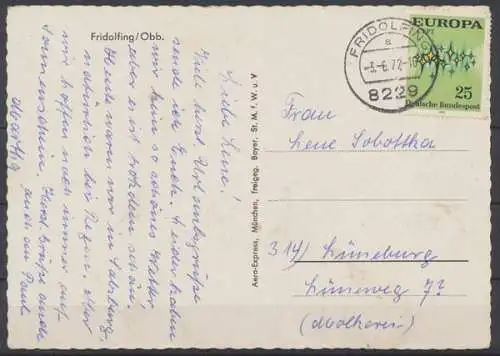 Fridolfing/Obb.
Liebe Lene!
Viele herzl. Urlaubsgrüße
sende ich Euch. Leider haben
wir kein so schönes Wetter
aber es ist trotzdem schön.
Heute waren wir in Salzburg
natürlich bei Regen. Aber
wir hoffen noch immer auf
Sonnenschein. Herzl. Grüße auch
auch an Paul
Martha
Aero-Express, München, freigeg. Bayer. St. M. f. W. u. V
FRIDOLFING
a
-5.6.72-10
8229
EUROPA
CEPT
25
Deutsche Bundespost
Frau
Lene Sobottka
314 Lüneburg
Lüneweg 7?
(Molkerei)